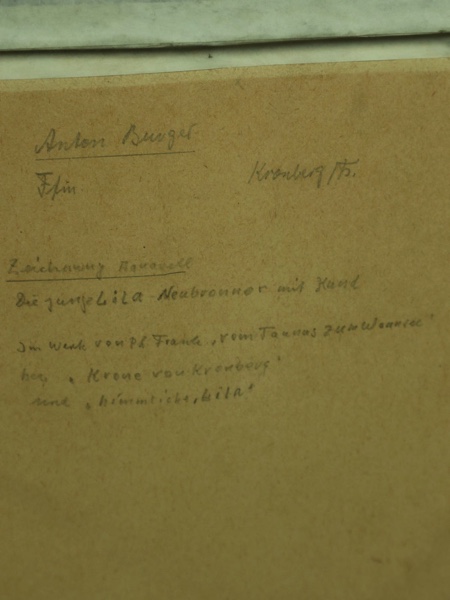 Anton Burger
Ffm Kronberg/Ts.
Zeichnung Aquarell
Die junge Lila Neubronner mit Hund
Im Werk von Ph Franck „vom Taunus zum Wannsee"
„Krone von Kronberg"
und „himmlische Lila"